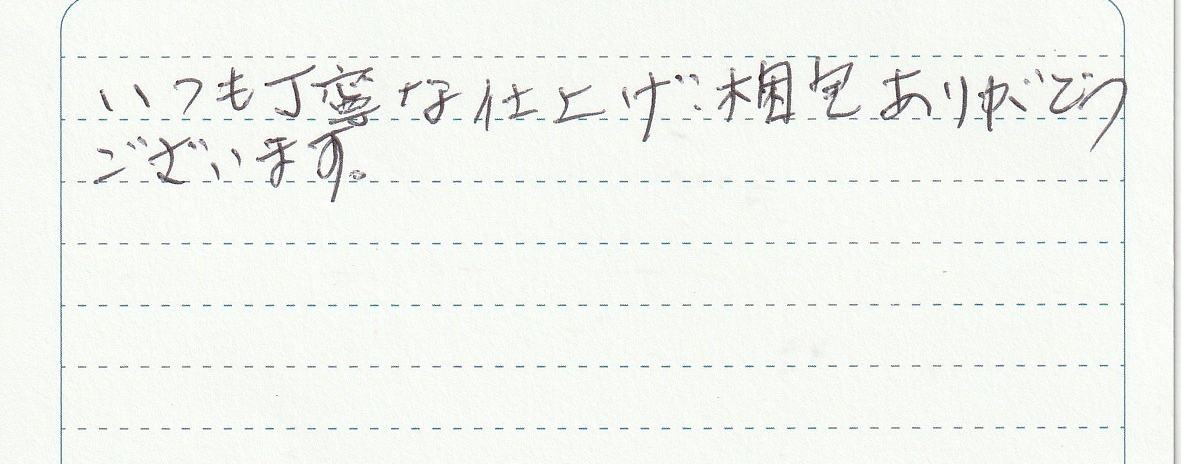 いつも丁寧な仕上げ、梱包ありがとう
ございます。